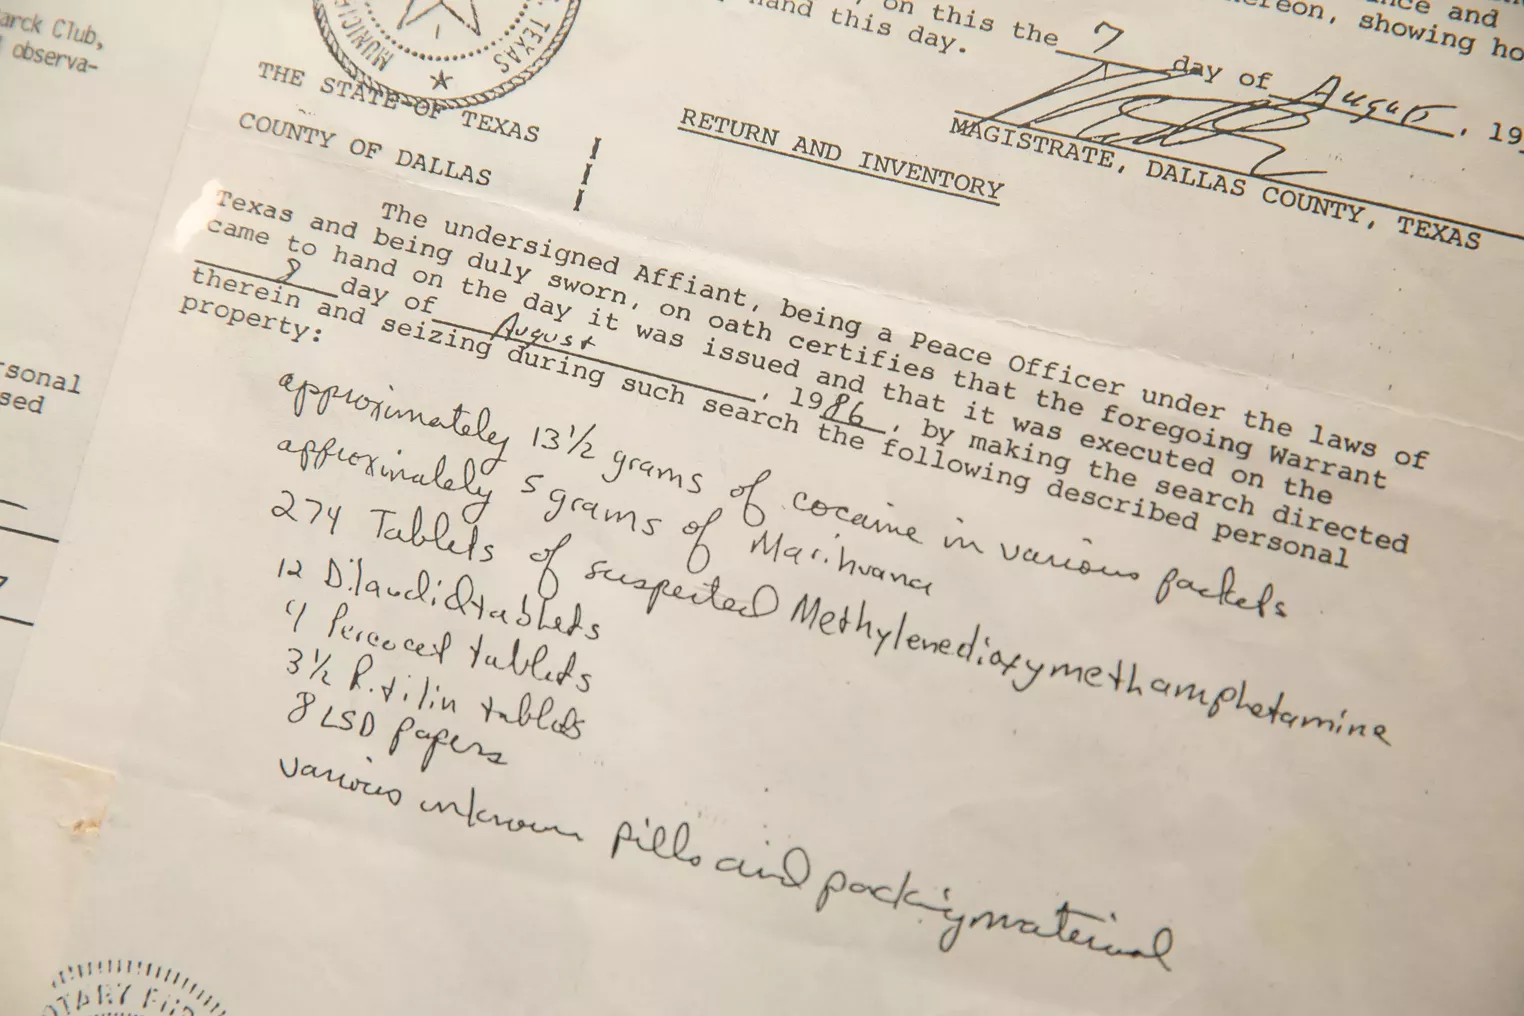 arck Club,
observa-
rsonal
sed
nce and
ereon, showing ho
on this the 7 day of August, 19
hand this day.
MAGISTRATE, DALLAS COUNTY, TEXAS
MUNICIPAL
TEXAS
THE STATE OF TEXAS
COUNTY OF DALLAS
RETURN AND INVENTORY
The undersigned Affiant, being a Peace Officer under the laws of
Texas and being duly sworn, on oath certifies that the foregoing Warrant
came to hand on the day it was issued and that it was executed on the
8 day of August, 1986, by making the search directed
therein and seizing during such search the following described personal
property:
approximately 13 1/2 grams of cocaine in various packets
approximately 5 grams of Marihuana
274 Tablets of suspected Methylenedioxymethamphetamine
12 Dilaudid tablets
4 Percocet tablets
3 1/2 Ritilin tablets
8 LSD papers
various unknown pills and packing material
OTARY PUB